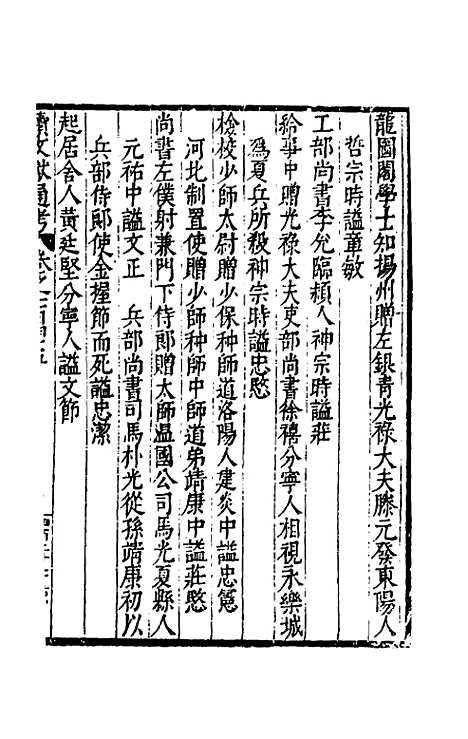 龍圖閣學士知揚州贈左銀青光祿大夫滕元發東陽人
哲宗時謚章敏
工部尚書李兊臨頴人神宗時謚莊
給事中贈光祿大夫吏部尚書徐禧分寧人相視永樂城
為夏兵所殺神宗時謚忠愍
檢校少師太尉贈少保种師道洛陽人建炎中謚忠憲
河北制置使贈少師种師中師道弟靖康中謚莊愍
尚書左僕射兼門下侍郎贈太師温國公司馬光夏縣人
元祐中謚文正 兵部尚書司馬朴光從孫靖康初以
兵部侍郎使金握節而死謚忠潔
起居舍人黃廷堅分寧人謚文節
續文獻通考 卷之一百四十五